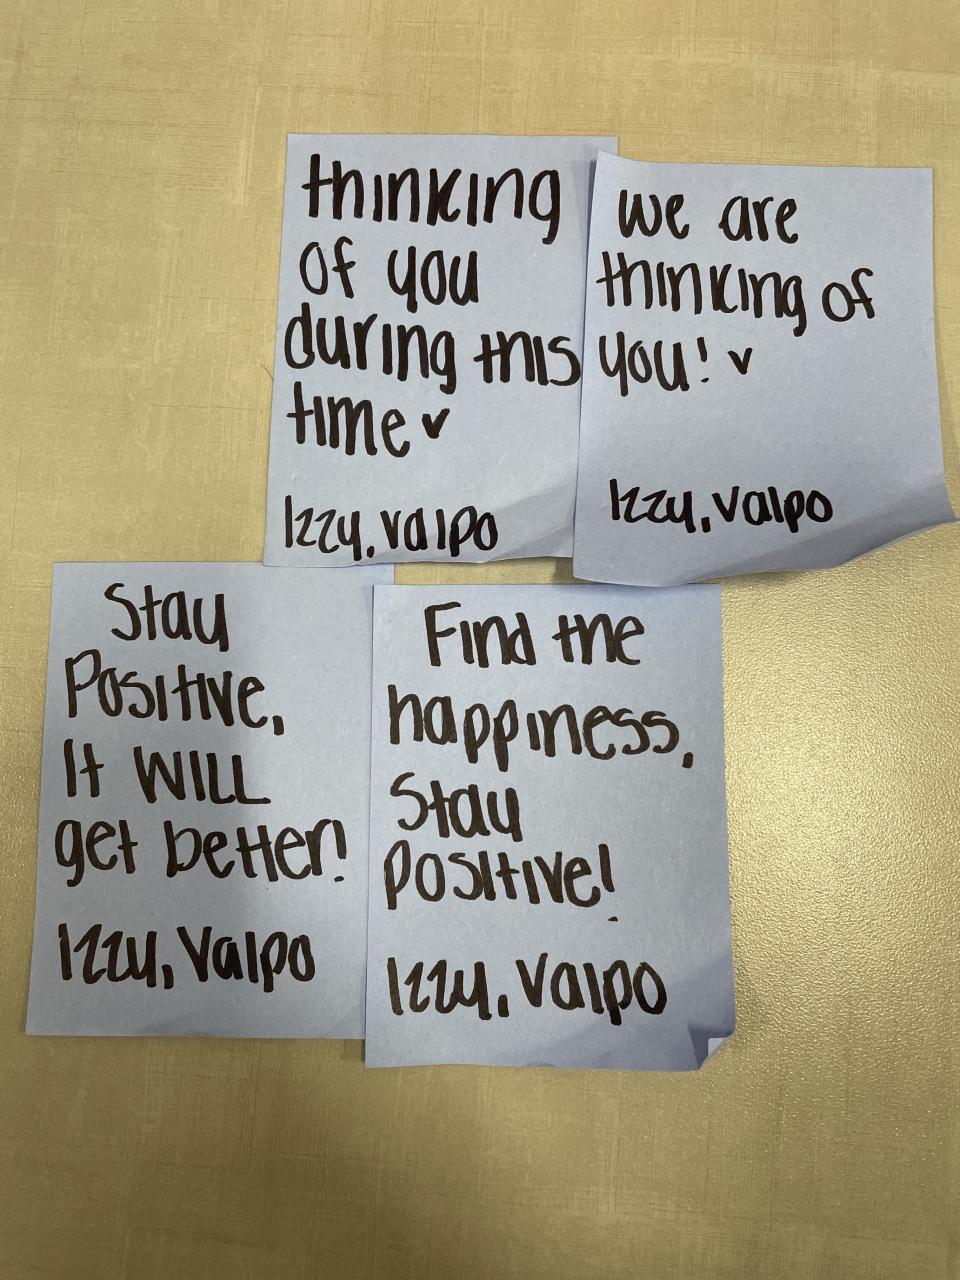 thinking
of you
during this
time ♥
Izzy, Valpo
we are
thinking of
you! ♥
Izzy, Valpo
Stay
Positive,
It WILL
get better!
Izzy, Valpo
Find the
happiness,
Stay
positive!
Izzy, Valpo